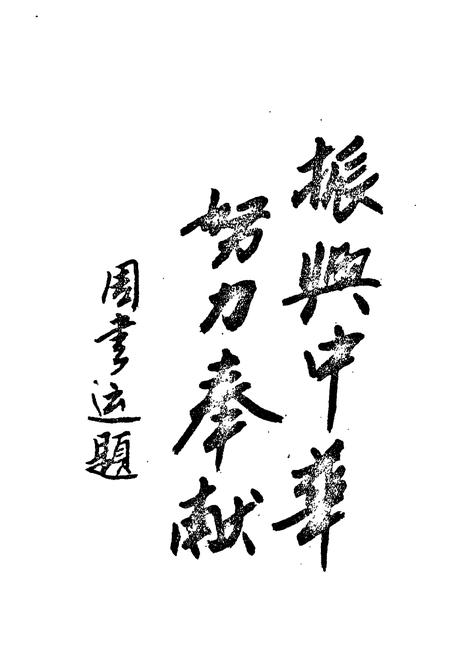 振興中華
努力奉献
周書运題